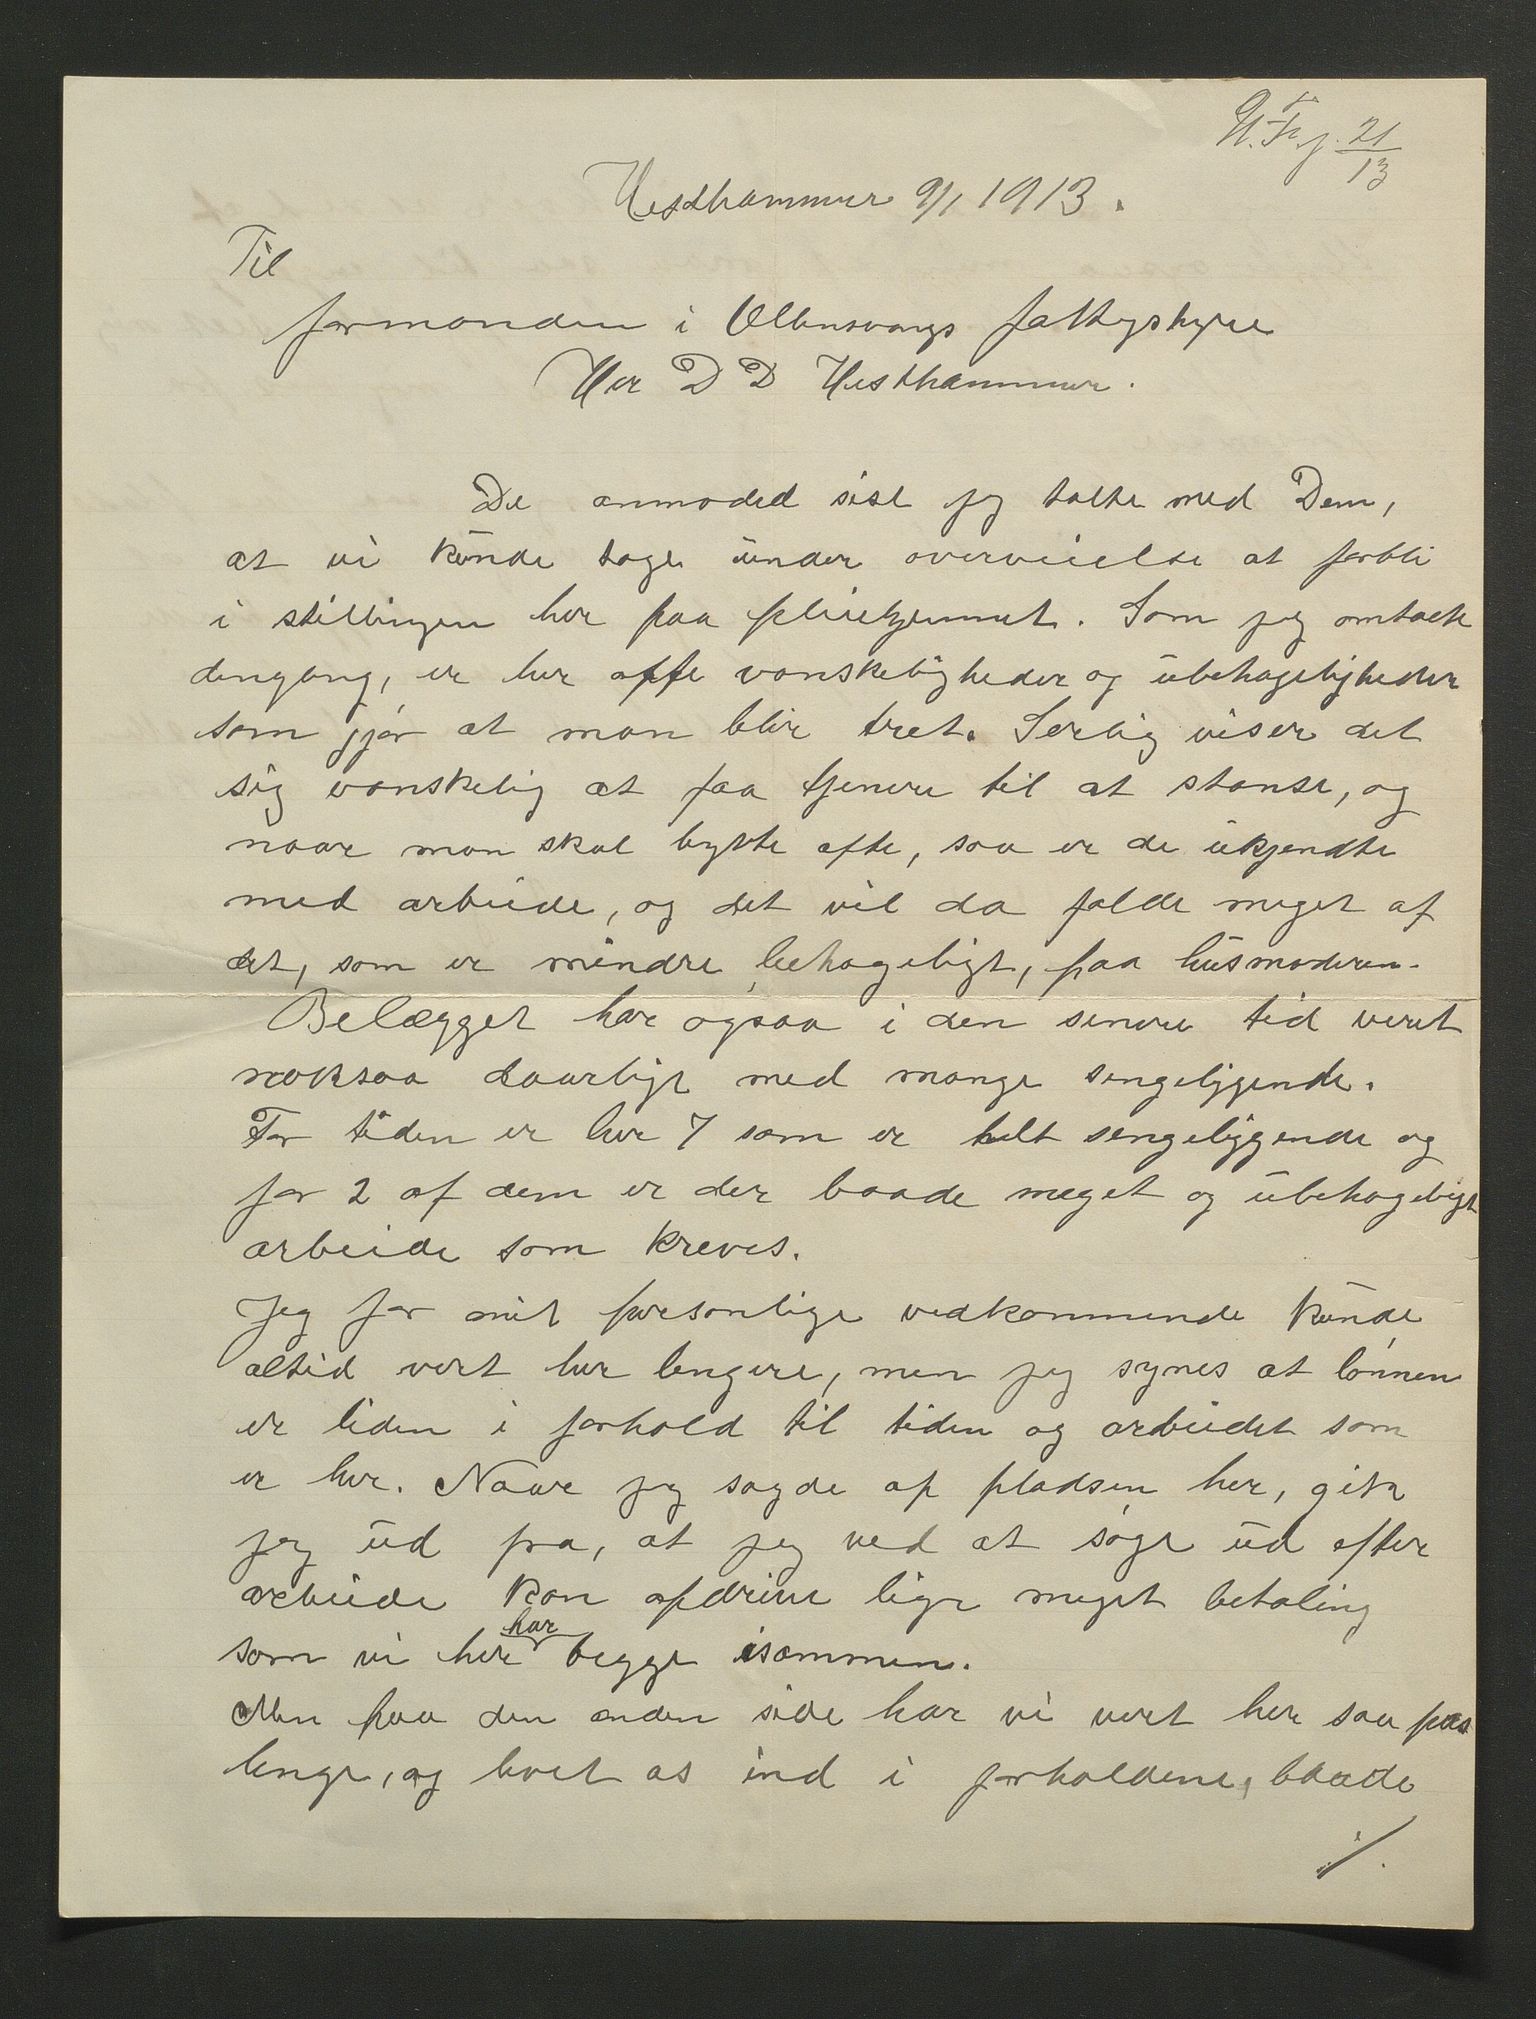 21/13
Hesthammer 9/1 1913.
Til
formanden i Ullensvangs fattigstyre
Her D D Hesthammer.
De anmoded sist jeg talte med Dem,
at vi kunde tage under overveielse at forbli
i stillingen her paa pleiehjemmet. Som jeg omtalte
dengang, er her ofte vanskeligheder og ubehageligheder
som gjør at man blir tret. Serlig viser det
sig vanskelig at faa tjenere til at stanse, og
naar man skal bytte ofte, saa er de ukjendte
med arbeide, og det vil da falde meget af
det, som er mindre behageligt, paa husmoderen.
Belægget har ogsaa i den senere tid veret
noksaa daarlige med mange sengeligende.
For tiden er her 7 som er helt sengeliggende og
for 2 af dem er der baade meget og ubehageligt
arbeide som kreves.
Jeg for mit personlige vedkommende kunde
altid vert her lengere, men jeg synes at lønnen
er liden i forhold til tiden og arbeidet som
er her. Naar jeg sagde op pladsen her, gik
jeg ud fra, at jeg ved at søge ud efter
arbeide kan opdrive lige meget betaling
som vi her har begge isammen.
Men paa den anden side har vi vert her saa pas
lenge, og levet os ind i forholdene, baade
./.